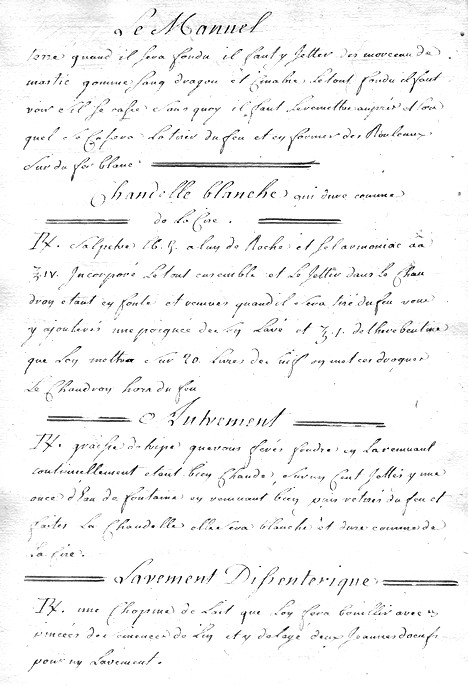 Le Manuel
terre quand il sera fondu il faut y Jetter des morceau de
mastic gomme sang dragon et Cinabre le tout fondu il faut
voir s'il se casse sans quoy il faut le remettre auprès et lors
quel se Casera la tirer du feu et en former des Rouleaux
sur du fer blanc
Chandelle blanche qui dure comme
de la Cire.
Rx. Salpetre lb. ß. aluy de Roche et sel armoniac aa
℥ iv. Incorporé le tout ensemble et le Jetter dans le Chau
dron etant en fonte et remués quand il sera tiré du feu vous
y ajouterés une poignée de son Lavé et ℥ 1. de therebentine
que Lon mettra sur 20. Livres de suif on met ces drogues
Le Chaudron hors du feu
Autrement
Rx. graisse de tripe que vous ferés fondre en La remuant
continuellement etant bien Chaude, sur un Cent Jettés y une
once d'Eau de fontaine en remuant bien puis retirés du feu et
faites La Chandelle elle sera blanche et dure comme de
La Cire.
Lavement Dissenterique
Rx. une Chopine de Lait que Lon fera bouillir avec
pincées de semence de Lin et y delayé deux Jeaunes d'oeufs
pour un Lavement.